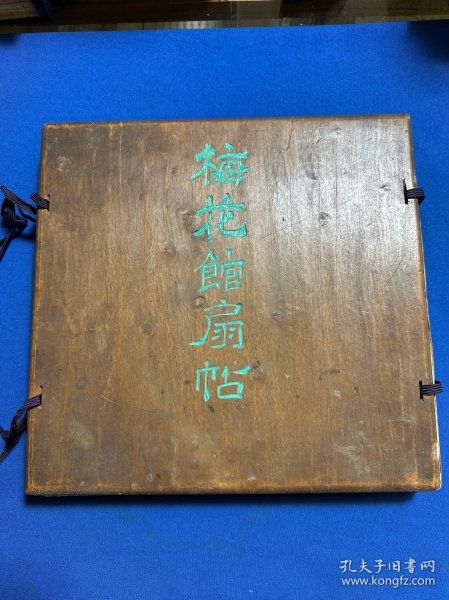 梅花館扇帖
孔夫子旧书网
www.kongfz.com